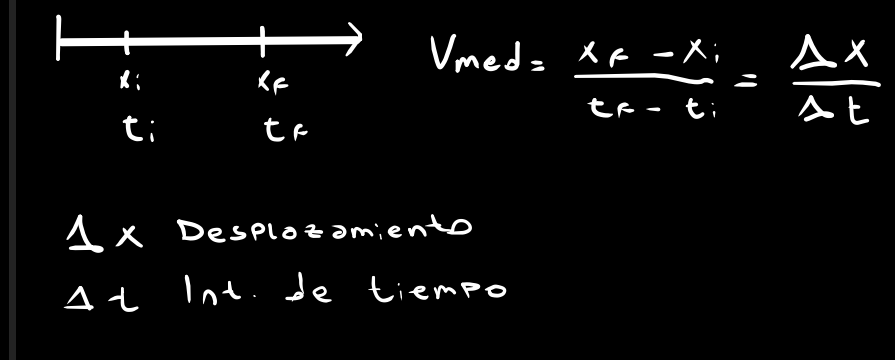 xᵢ x_F
tᵢ t_F
Vmed = (x_F - xᵢ)/(t_F - tᵢ) = Δx/Δt
Δx Desplazamiento
Δt Int. de tiempo